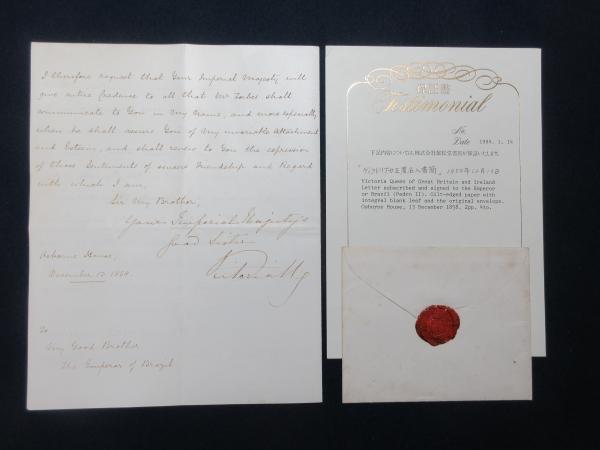 I therefore request that Your Imperial Majesty will
give entire credence to all that Mr Forbes shall
communicate to You in My Name, and more especially
when he shall assure You of My invariable Attachment
and Esteem, and shall renew to You the expression
of those Sentiments of sincere Friendship and Regard
with which I am,
Sir My Brother,
Your Imperial Majesty's
Good Sister
Victoria R
Osborne House,
December 13. 1858.
To
My Good Brother
The Emperor of Brazil.
保証書
Testimonial
No.
Date 1989. 1. 14
下記内容について株式会社雄松堂書店が保証いたします
「ヴィクトリア女王署名入書簡」1858年12月13日
Victoria Queen of Great Britain and Ireland
Letter subscribed and signed to the Emperor
or Brazil (Pedro II). Gilt-edged paper with
integral blank leaf and the original envelope.
Osborne House, 13 December 1858. 2pp. 4to.